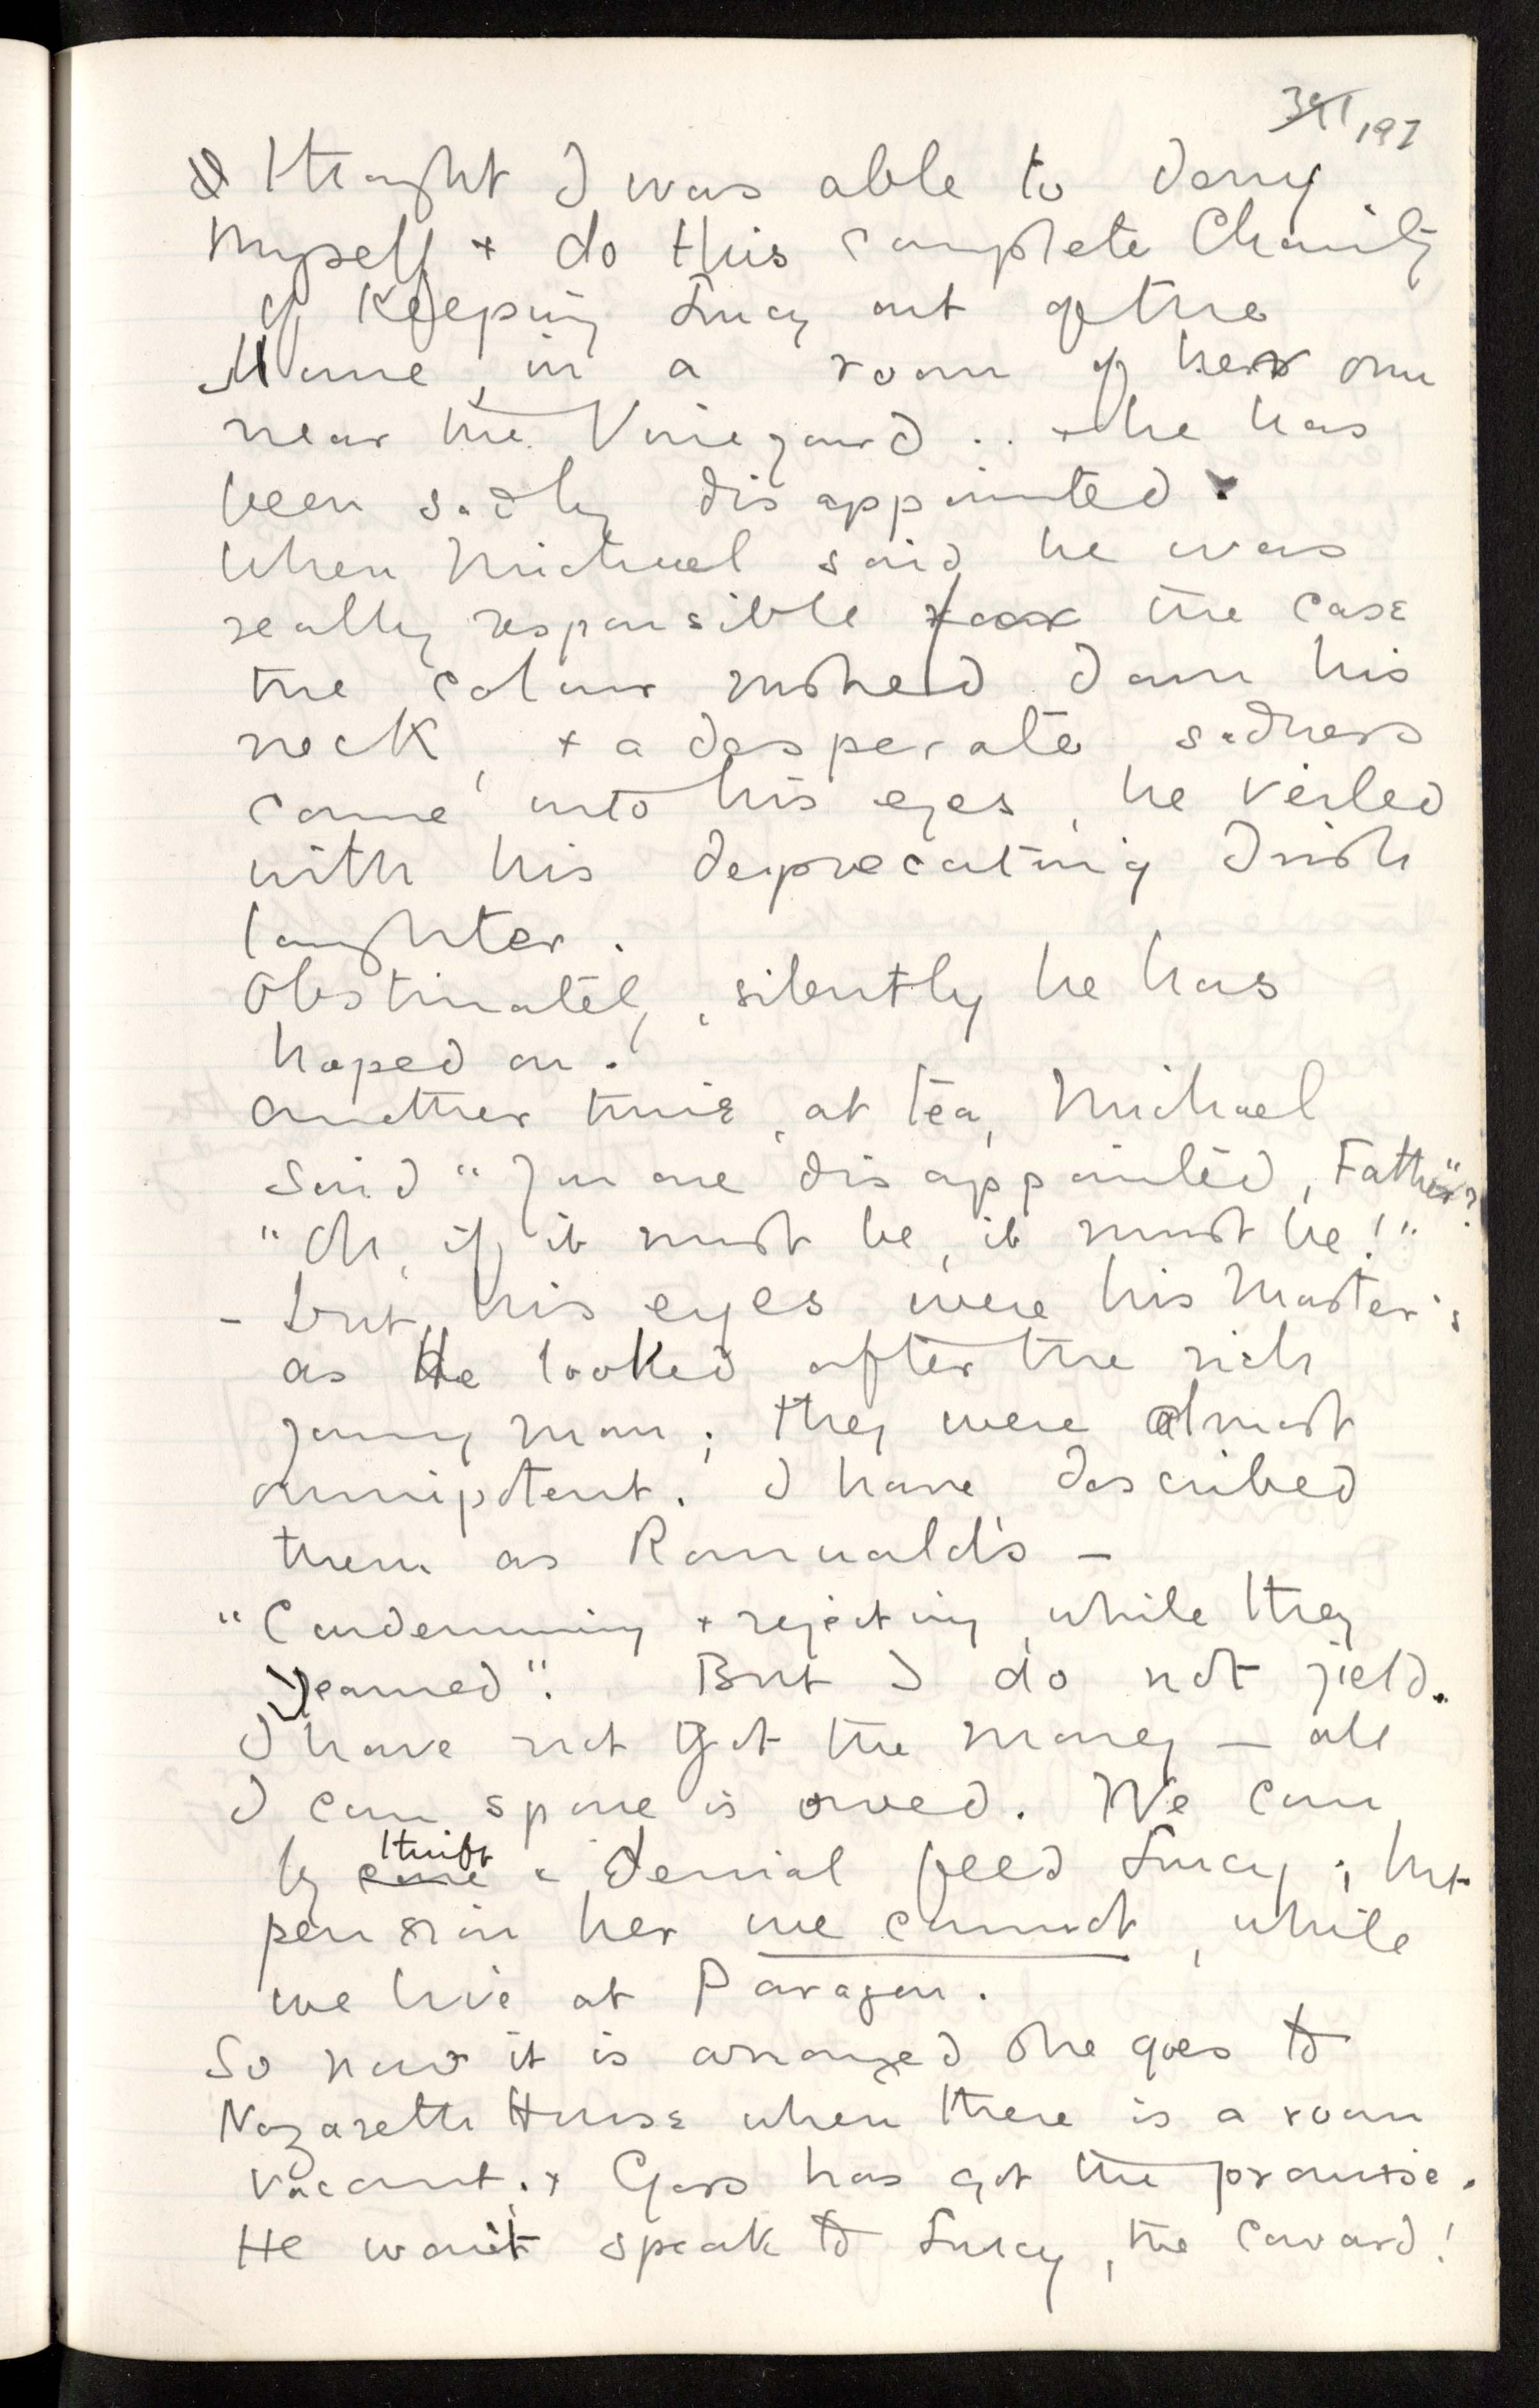 391 197
& thought I was able to deny
myself + do this complete Charity
of Keeping Lucy out of the
Home, in a room of her own
near the Vineyard .. + he has
been sadly disappointed.
When Michael said he was
really responsible for the case
the colour rushed down his
neck, + a desperate sadness
came into his eyes, he veiled
with his deprecating Irish
laughter.
Obstinately, silently he has
hoped on.
Another time, at tea, Michael
said "You are disappointed, Father"?
"Oh, if it must be, it must be!"
- but his eyes were his Master's
as He looked after the rich
young man; they were almost
omnipotent. I have described
them as Romuald's –
"Condemning + rejecting, while they
Yearned". But I do not yield.
I have not got the money – all
I can spare is owed. We can
by care thrift & denial feed Lucy; but
pension her we cannot, while
we live at Paragon.
So now it is arranged she goes to
Nazareth House when there is a room
vacant. + Goss has got the promise.
He won't speak to Lucy, the coward!